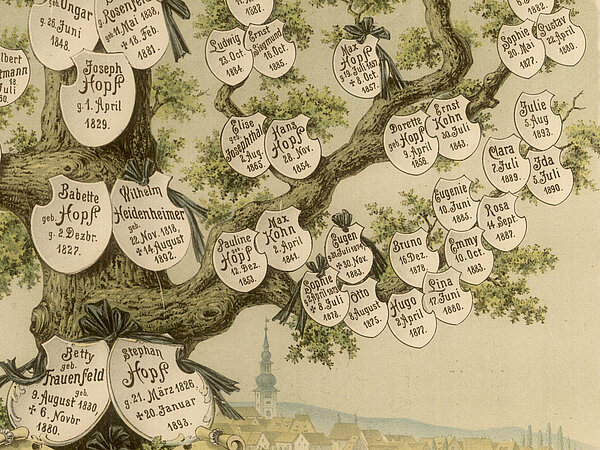 geb. Ungar
g. 26. Juni
1848.
g. Rosenfeld
g. 11. Mai 1838,
+ 18. Feb.
1881.
1887.
1882.
Ludwig
23. Oct
1884.
Ernst
Siegmund
16. Oct.
1885.
Max
Hopf
g. 19. Juli 1857
+ 8. Oct.
1857.
Sophie
30. Mai
1877.
Gustav
22. April
1880.
Joseph
Hopf
g. 1. April
1829.
Elise
geb.
Josephthal
2. Aug.
1865.
Hans
Hopf
28. Nov.
1854.
Dorette
geb. Hopf
9. April
1856
Ernst
Kohn
30. Juli
1843.
Julie
5. Aug
1893.
Clara
7. Juli
1889.
Ida
5. Juli
1890.
Babette
geb. Hopf
g. 2. Dezbr.
1827.
Wilhelm
Heidenheimer
geb.
12. Nov. 1818,
+ 14. August
1892.
Eugenie
10. Juni
1885.
Rosa
14. Sept.
1887.
Pauline
geb. Hopf
12. Dez.
1853.
Max
Kohn
2. April
1841.
Eugen
+ 30. Nov.
1883.
Bruno
16. Dez.
1878
Emmy
10. Oct.
1883.
Sophie
+ 6. Juli
1878
Otto
8. August
1875.
Hugo
2. April
1877.
Lina
17. Juni
1880.
Betty
geb.
Frauenfeld
geb.
9. August 1830,
+ 6. Novbr
1880.
Stephan
Hopf
g. 21. März 1826,
+ 20. Januar
1893.